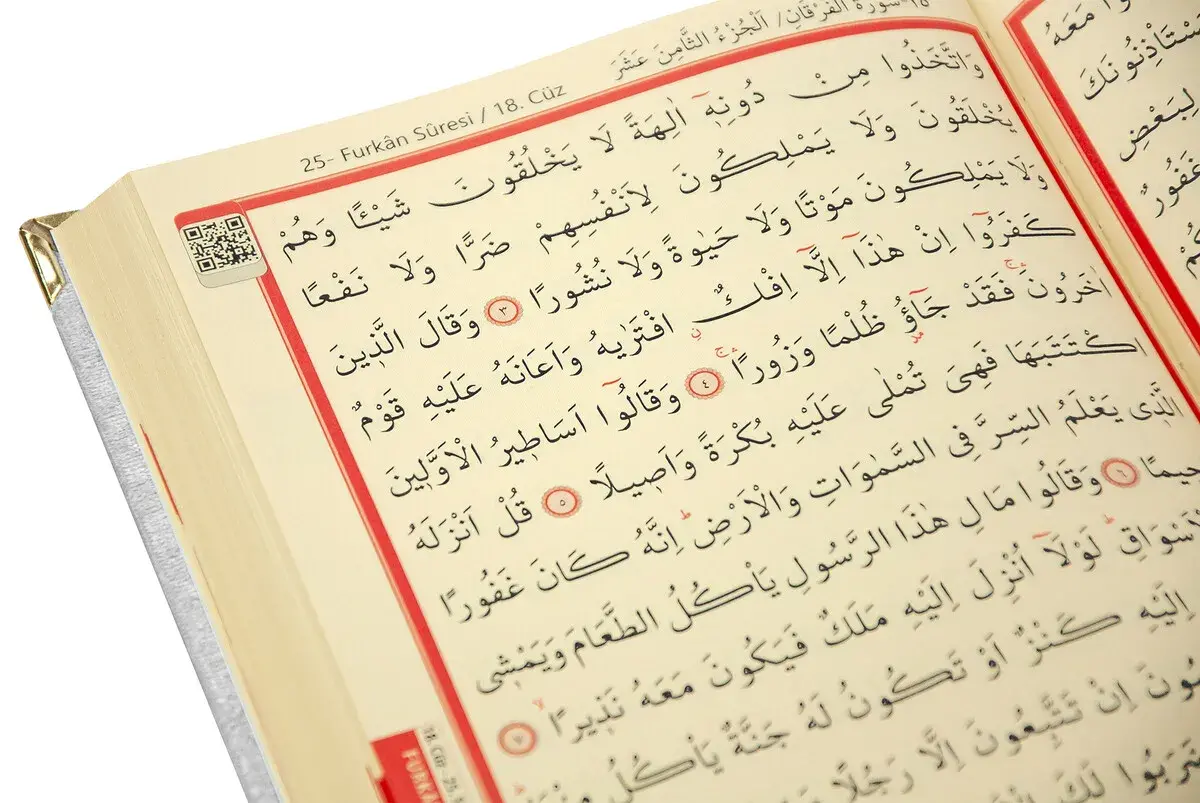 ٢٥-سورة الفرقان/ الجزء الثامن عشر
25- Furkân Sûresi / 18. Cüz
وَاتَّخَذُوا مِنْ دُونِهٖٓ اٰلِهَةً لَا يَخْلُقُونَ شَيْـًٔا وَهُمْ
يُخْلَقُونَ وَلَا يَمْلِكُونَ لِاَنْفُسِهِمْ ضَرًّا وَلَا نَفْعًا
وَلَا يَمْلِكُونَ مَوْتًا وَلَا حَيٰوةً وَلَا نُشُورًا ﴿٣﴾ وَقَالَ الَّذٖينَ
كَفَرُٓوا اِنْ هٰذَٓا اِلَّٓا اِفْكٌ افْتَرٰيهُ وَاَعَانَهُ عَلَيْهِ قَوْمٌ
اٰخَرُونَ فَقَدْ جَٓاؤُ ظُلْمًا وَزُورًا ﴿٤﴾ وَقَالُٓوا اَسَاطٖيرُ الْاَوَّلٖينَ
اكْتَتَبَهَا فَهِىَ تُمْلٰى عَلَيْهِ بُكْرَةً وَاَصٖيلًا ﴿٥﴾ قُلْ اَنْزَلَهُ
الَّذٖى يَعْلَمُ السِّرَّ فِى السَّمٰوَاتِ وَالْاَرْضِ اِنَّهُ كَانَ غَفُورًا
حٖيمًا ﴿٦﴾ وَقَالُوا مَالِ هٰذَا الرَّسُولِ يَاْكُلُ الطَّعَامَ وَيَمْشٖى
اَسْوَاقِ لَوْلَٓا اُنْزِلَ اِلَيْهِ مَلَكٌ فَيَكُونَ مَعَهُ نَذٖيرًا ﴿٧﴾
اِلَيْهِ كَنْزٌ اَوْ تَكُونُ لَهُ جَنَّةٌ يَاْكُلُ
اِنْ تَتَّبِعُونَ اِلَّا رَجُلًا
لَكَ
مَعَهُ
لِبَعْضِ